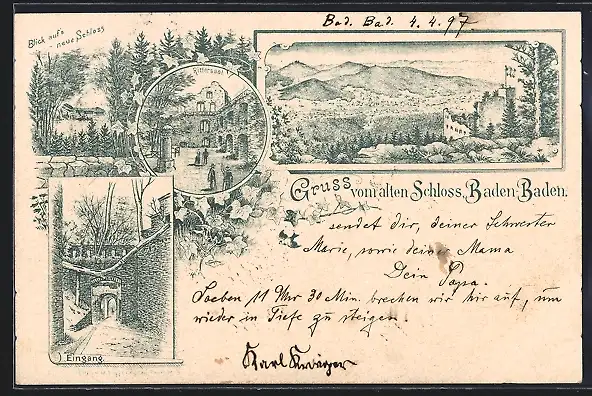 Bad. Bad. 4.4.97
Blick aufs
neue Schloss
Rittersaal
Gruss vom alten Schloss, Baden-Baden.
sendet dir, deiner Schwester
Marie, sowie deiner Mama
Dein Papa.
Soeben 11 Uhr 30 Min. brechen wir hier auf, um
wieder in Tiefe zu steigen
Eingang.
Karl